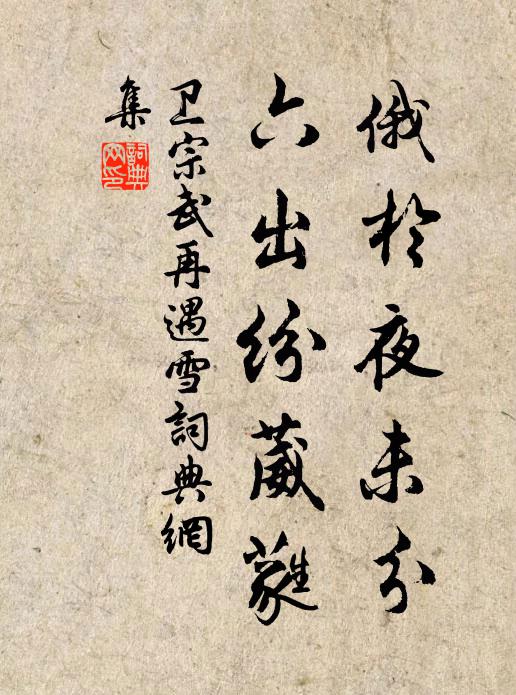 俄於夜未分
六出紛葳蕤
卫宗武再遇雪詞典網
集
詞典網印